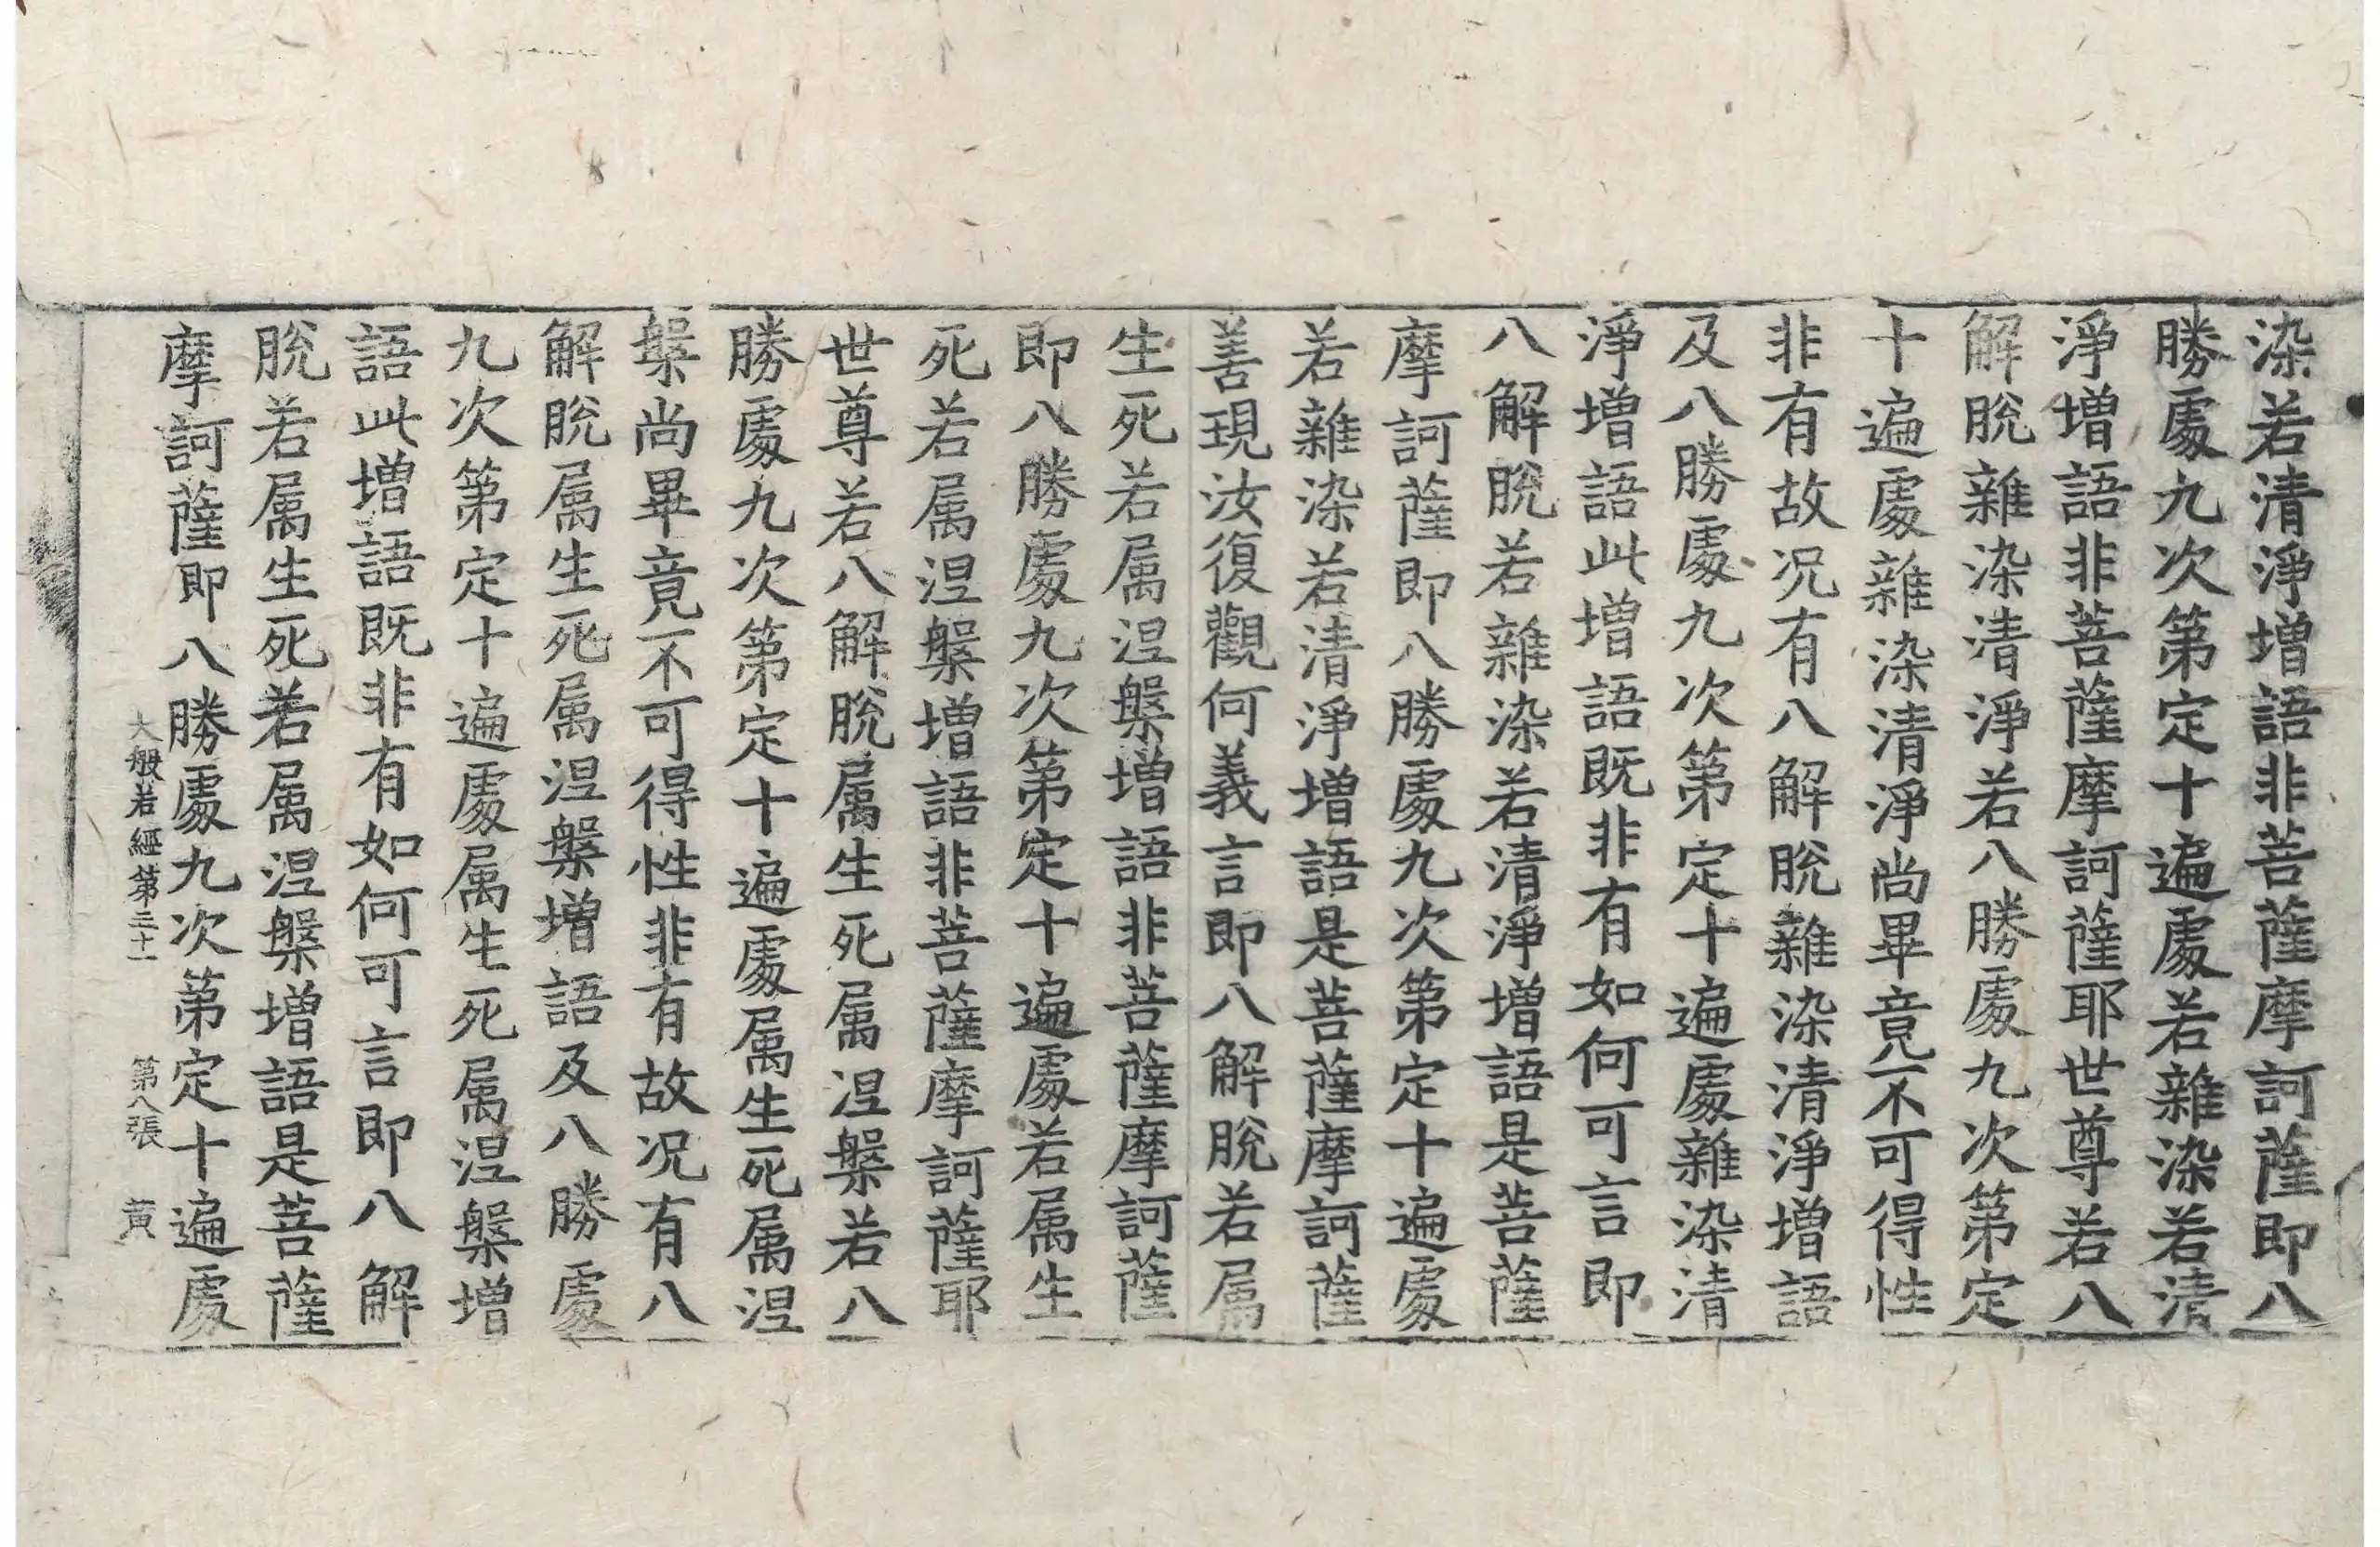 染若清淨增語非菩薩摩訶薩即八
勝處九次第定十遍處若雜染若清
淨增語非菩薩摩訶薩耶世尊若八
解脫雜染清淨若八勝處九次第定
十遍處雜染清淨尚畢竟不可得性
非有故况有八解脫雜染清淨增語
及八勝處九次第定十遍處雜染清
淨增語此增語既非有如何可言即
八解脫若雜染若清淨增語是菩薩
摩訶薩即八勝處九次第定十遍處
若雜染若清淨增語是菩薩摩訶薩
善現汝復觀何義言即八解脫若属
生死若属涅槃增語非菩薩摩訶薩
即八勝處九次第定十遍處若属生
死若属涅槃增語非菩薩摩訶薩耶
世尊若八解脫属生死属涅槃若八
勝處九次第定十遍處属生死属涅
槃尚畢竟不可得性非有故况有八
解脫属生死属涅槃增語及八勝處
九次第定十遍處属生死属涅槃增
語此增語既非有如何可言即八解
脫若属生死若属涅槃增語是菩薩
摩訶薩即八勝處九次第定十遍處
大般若經第三十 第八張 黄